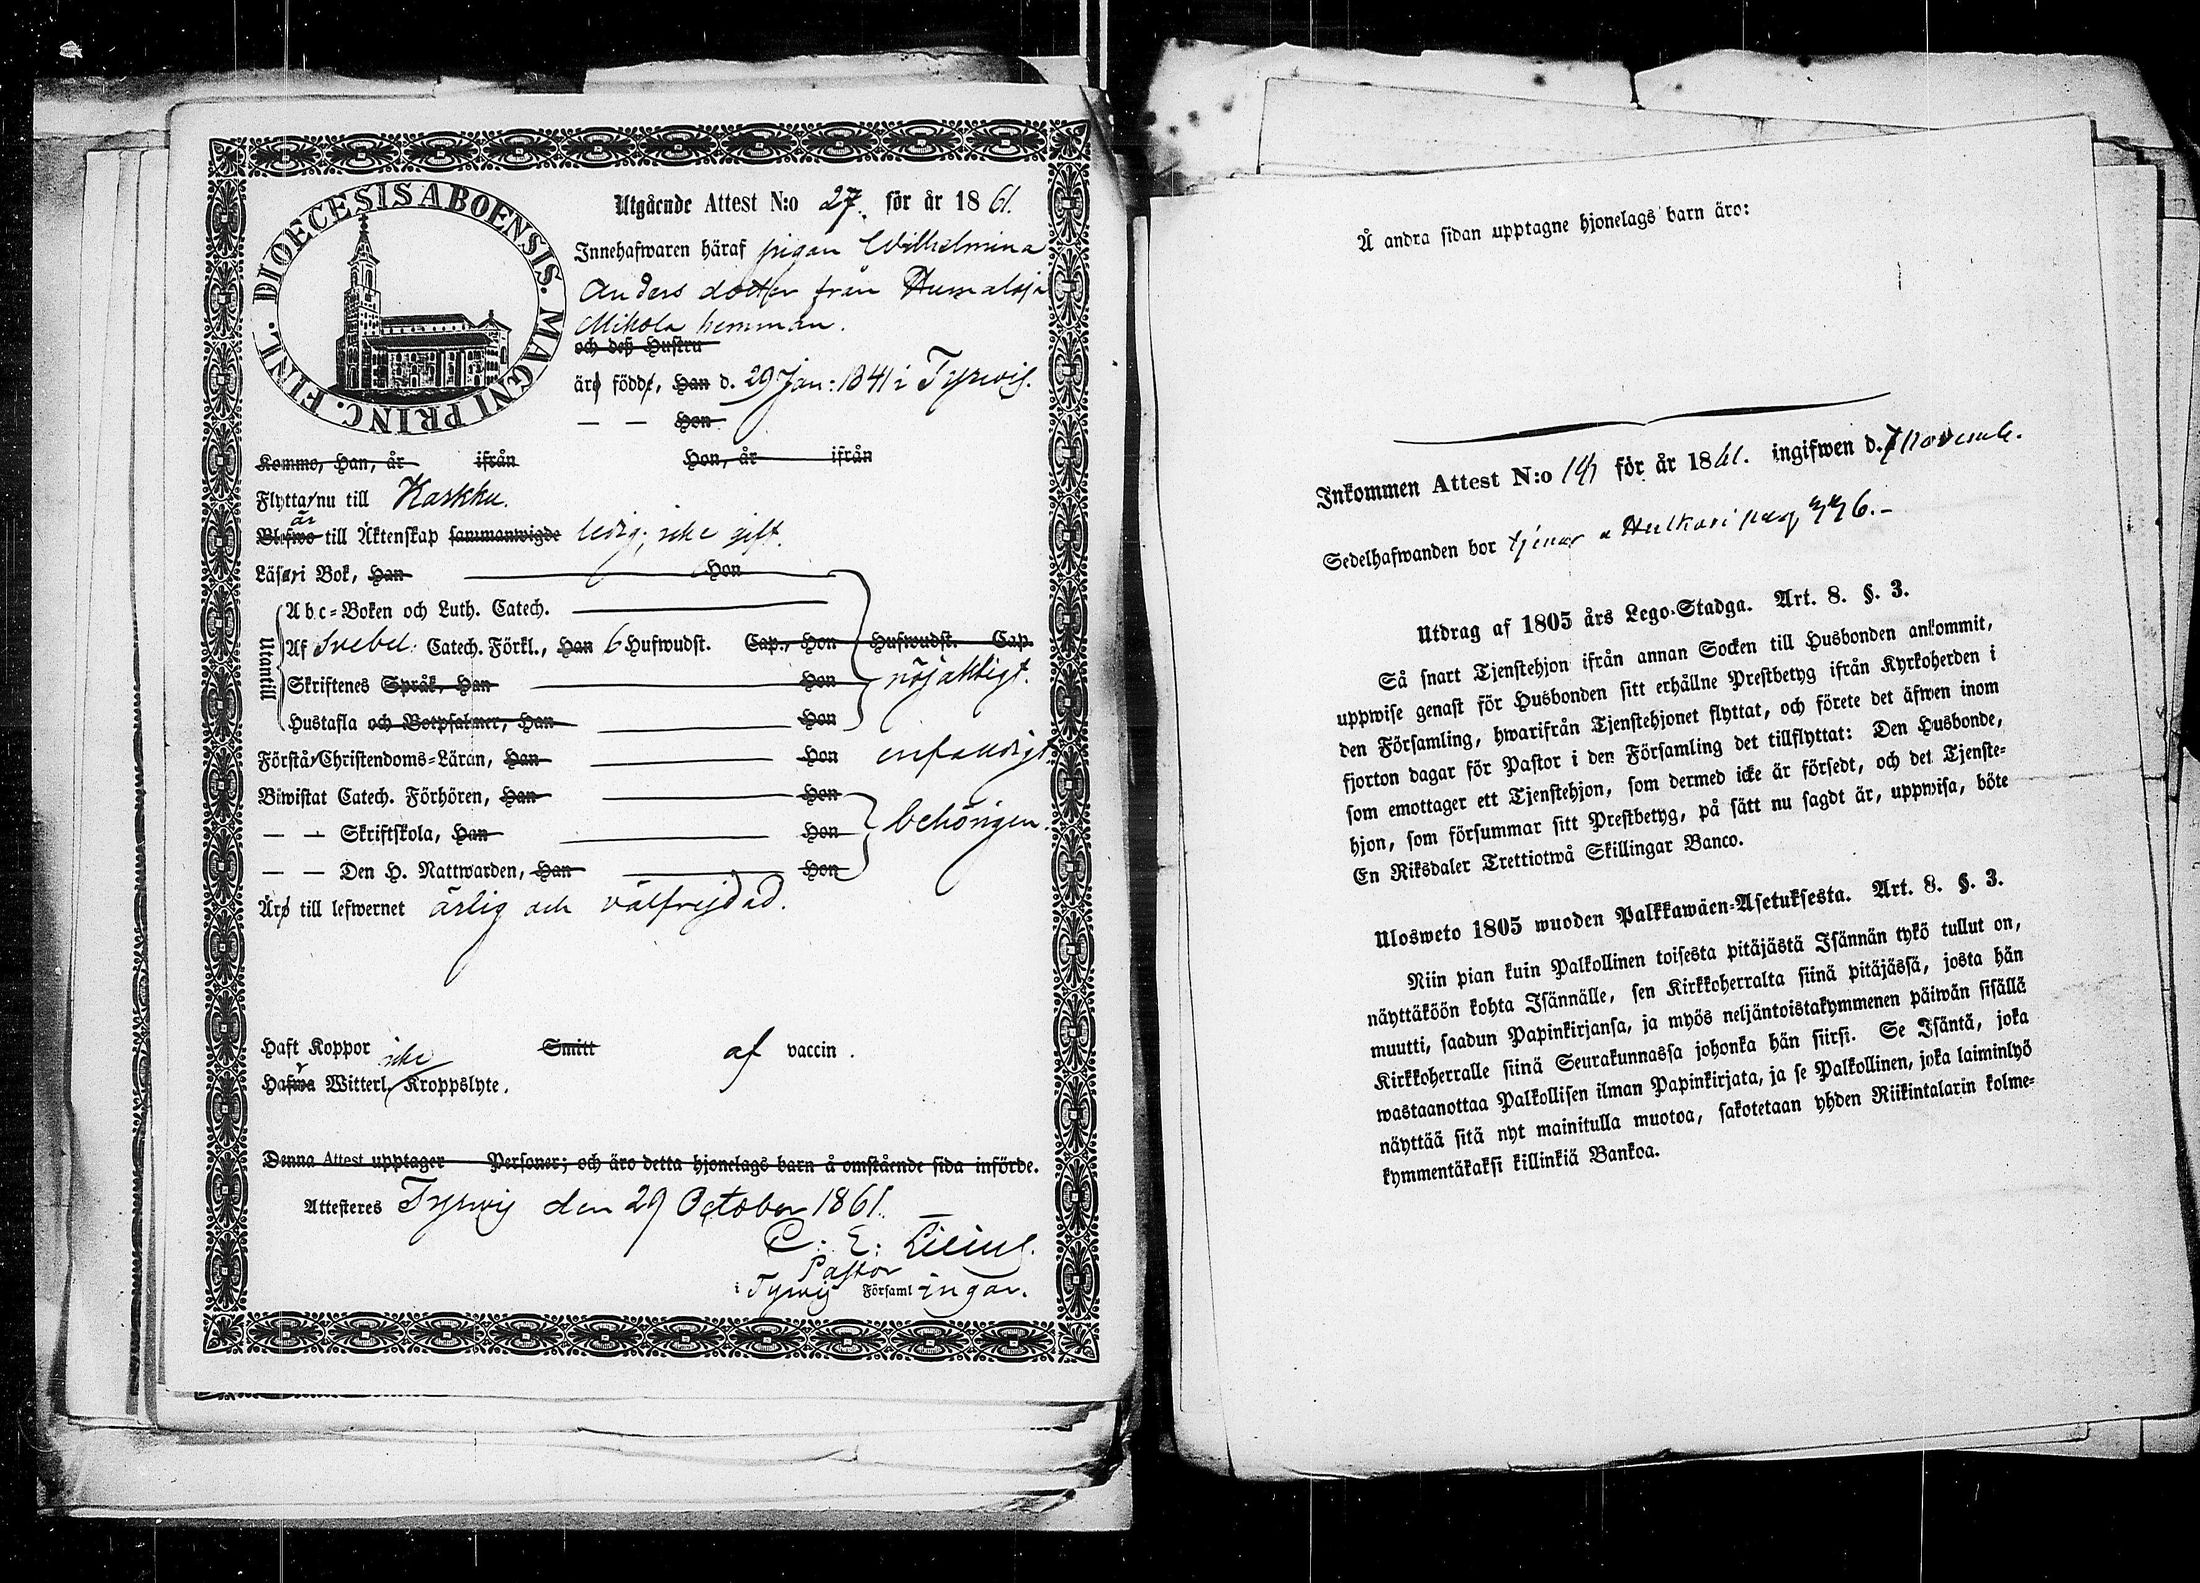 DIOECESIS ABOENSIS. MAGNI PRINC. FINL.
Utgående Attest N:o 27. för år 1861.
Innehafwaren häraf pigan Wilhelmina
Anders dotter från Humaloja
Mikola hemman.
och deß Hustru
äro födde, Han d. 29 Jan: 1841 i Tyrwis.
— — Hon
Kommo, Han, år ifrån Hon, år ifrån
Flytta nu till Karkku.
är
Blefwo till Äktenskap sammanwigde ledig, icke gift.
Läsa i Bok, Han Hon
Utantill
Abc-Boken och Luth. Catech.
Af Svebel. Catech. Förkl., Han 6 Hufwudst. Cap., Hon Hufwudst. Cap.
Skriftenes Språk, Han Hon nöjaktigt.
Hustafla och Botpsalmer, Han Hon
Förstå Christendoms-Läran, Han Hon enfaldigt
Biwistat Catech. Förhören, Han Hon
— — Skriftskola, Han Hon behörigen.
— — Den H. Nattwarden, Han Hon
Äro till lefwernet ärlig och välfrejdad.
Haft Koppor Smitt af vaccin.
icke
Hafwa Witterl. Kroppslyte.
Denna Attest upptager Personer; och äro detta hjonelags barn å omstående sida införde.
Attesteres Tyrwis den 29 October 1861.
C. E. Lilius.
Pastor
i Tyrwis Församlingar.
Å andra sidan upptagne hjonelags barn äro:
Inkommen Attest N:o 141 för år 1861. ingifwen d. 7 Novemb.
Sedelhafwanden bor tjenar a Hulkari pag 336.-
Utdrag af 1805 års Lego-Stadga. Art. 8. §. 3.
Så snart Tjenstehjon ifrån annan Socken till Husbonden ankommit,
uppwise genast för Husbonden sitt erhållne Prestbetyg ifrån Kyrkoherden i
den Församling, hwarifrån Tjenstehjonet flyttat, och förete det äfwen inom
fjorton dagar för Pastor i den Församling det tillflyttat: Den Husbonde,
som emottager ett Tjenstehjon, som dermed icke är försedt, och det Tjenste-
hjon, som försummar sitt Prestbetyg, på sätt nu sagdt är, uppwisa, böte
En Riksdaler Trettiotwå Skillingar Banco.
Ulosweto 1805 wuoden Palkkawäen-Asetuksesta. Art. 8. §. 3.
Niin pian kuin Palkollinen toisesta pitäjästä Isännän tykö tullut on,
näyttäköön kohta Isännälle, sen Kirkkoherralta siinä pitäjässä, josta hän
muutti, saadun Papinkirjansa, ja myös neljäntoistakymmenen päiwän sisällä
Kirkkoherralle siinä Seurakunnassa johonka hän siirsi. Se Isäntä, joka
wastaanottaa Palkollisen ilman Papinkirjata, ja se Palkollinen, joka laiminlyö
näyttää sitä nyt mainitulla muotoa, sakotetaan yhden Riikintalarin kolme-
kymmentäkaksi killinkiä Bankoa.